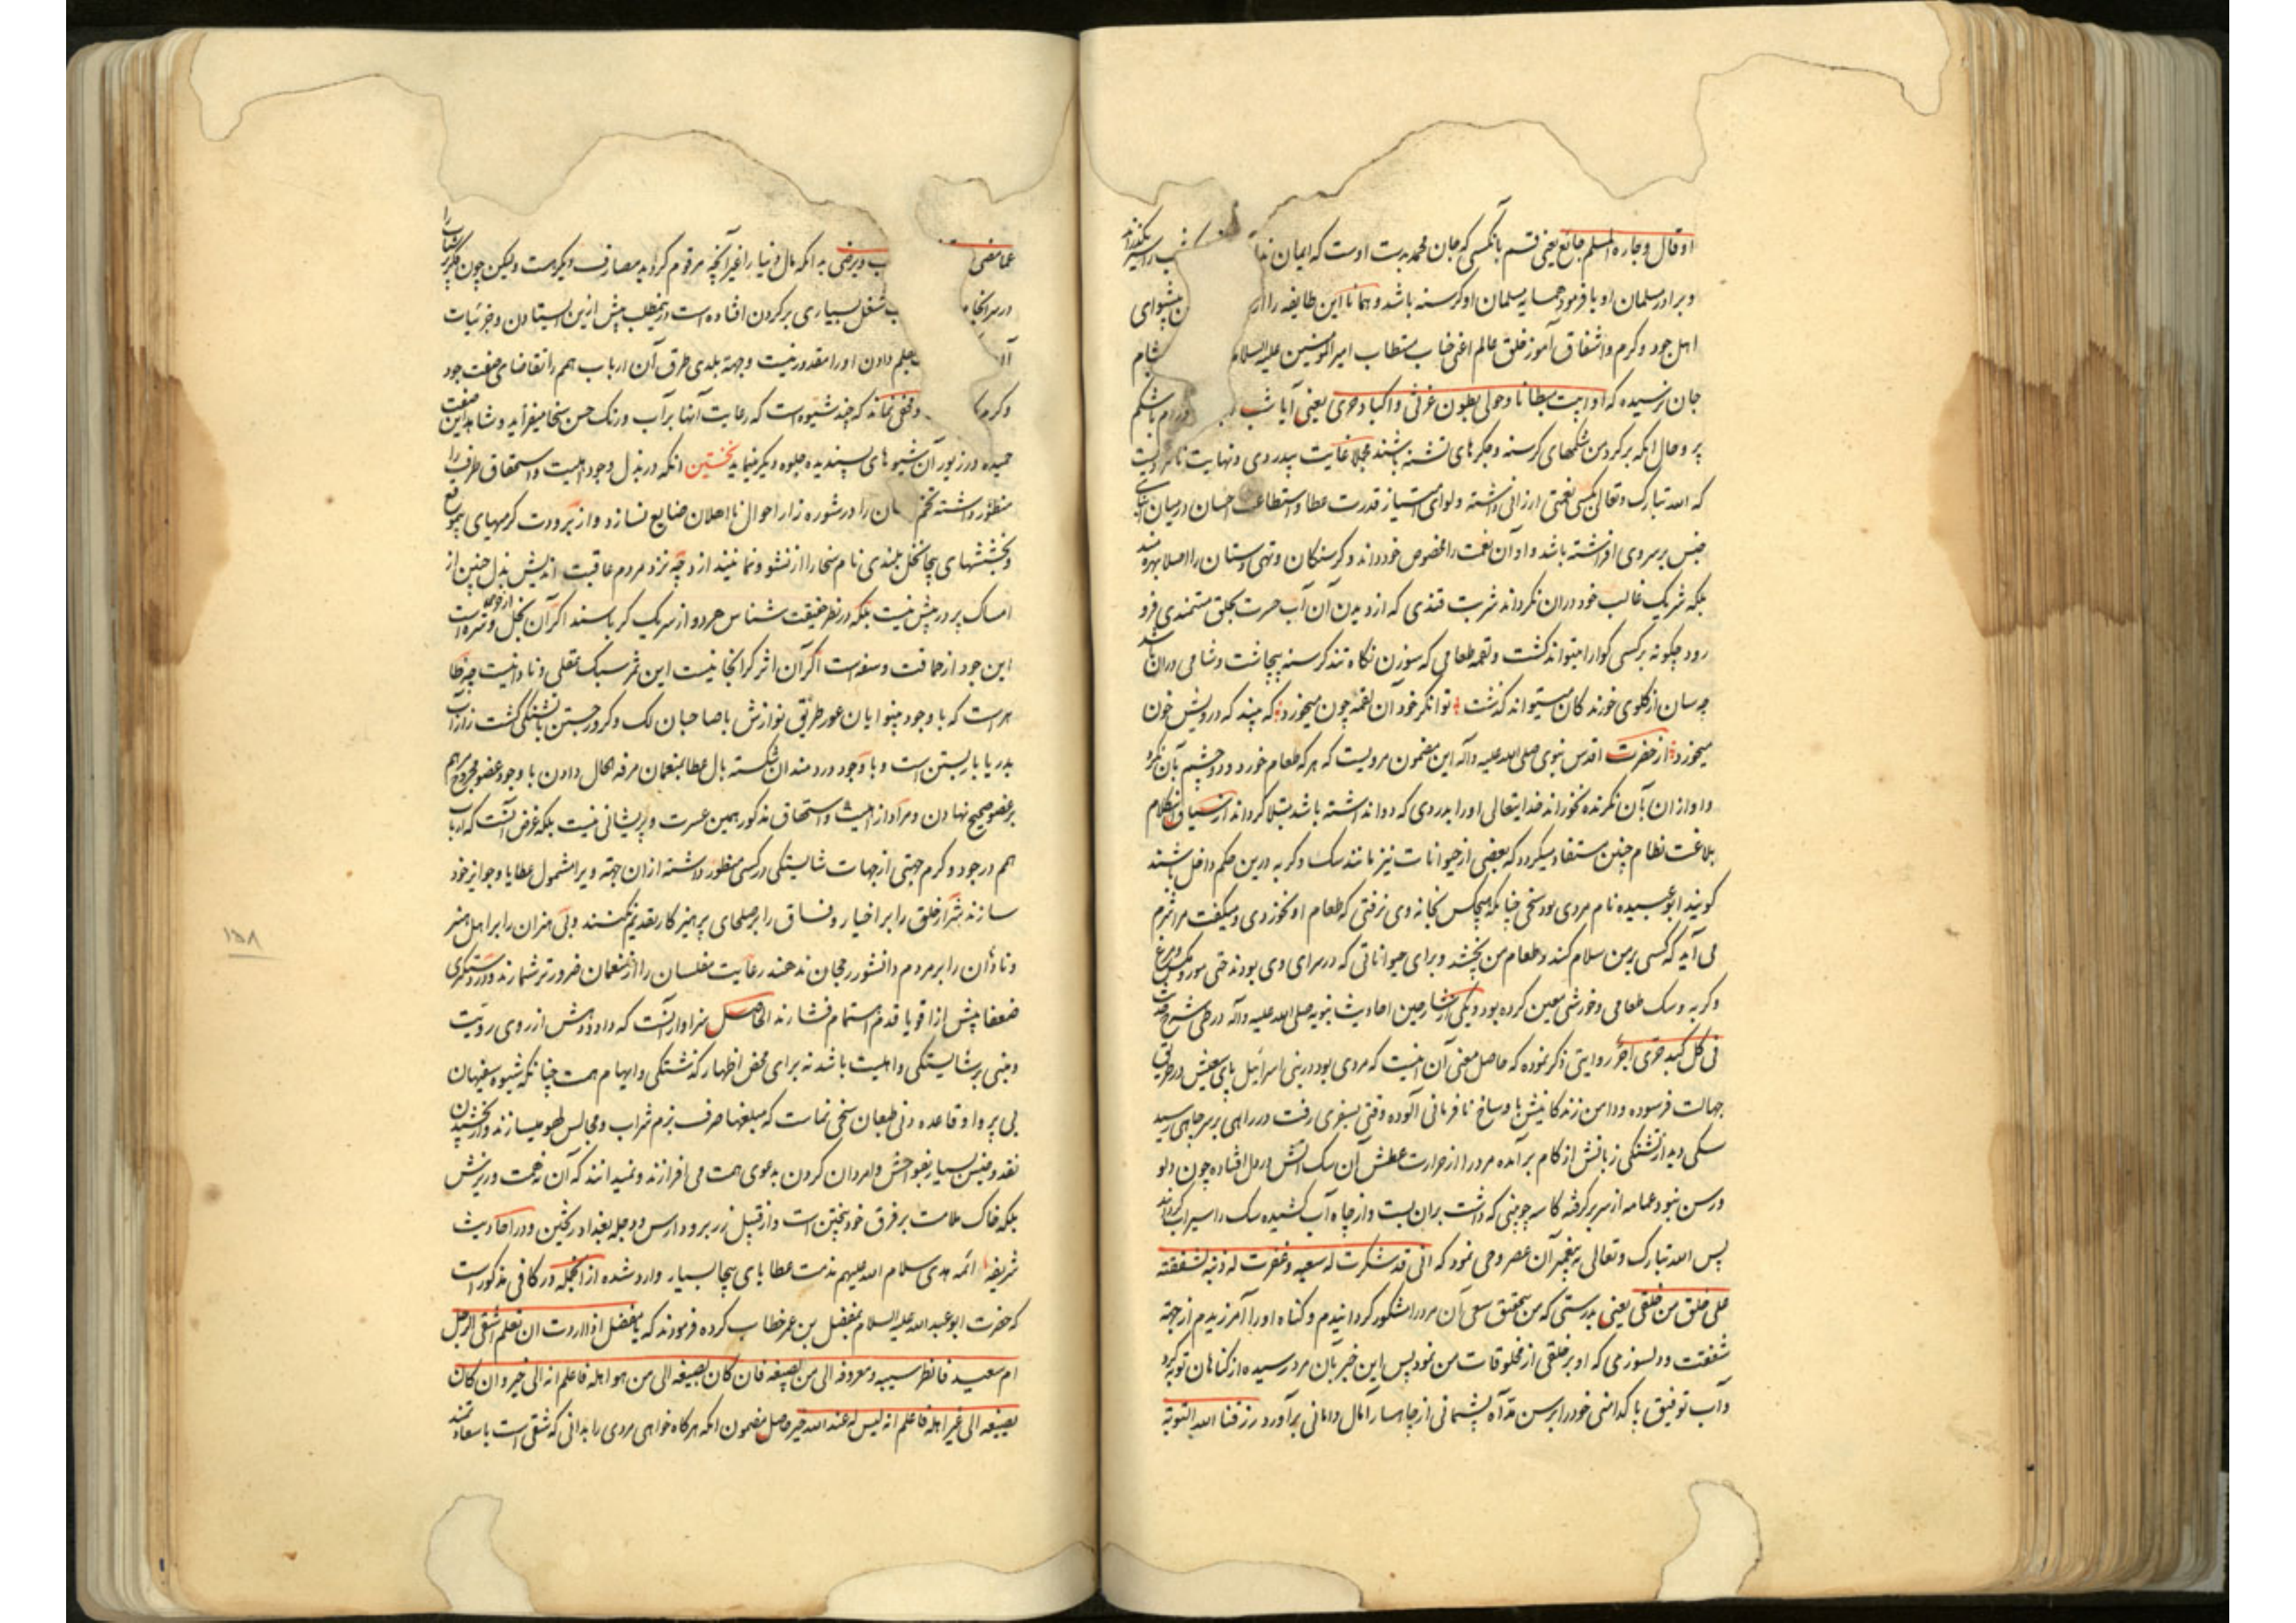 او قال وجاره المسلم جائع یعنی قسم بآنکسی که جان محمد بدست اوست که ایمان
و برادر مسلمان او یا فرمود همسایه مسلمان او گرسنه باشد و همانا این طایفه را از پیشوای
اهل جود و کرم و اشفاق آموز خلق عالم اعنی جناب مستطاب امیرالمومنین علیه السلام
جان نرسیده که او ابیت مبطانا وحولی بطون غرثی واکباد حری یعنی آیا شب باشکم
پر و حال انکه بر کرد من شکمهای کرسنه و جکرهای تشنه باشند مجلا غایت بیدردی و نهایت
که الله تبارک و تعالی بکسی نعمتی ارزانی داشته و لوای امتیاز قدرت عطا و استطاعت احسان درمیان
جنس بر سر وی افراشته باشد و او آن نعمت را مخصوص خود داند و کرسنکان و تهی دستان را اصلا بهره مند
بلکه شریک غالب خود دران نکرداند شربت قندی که از دیدن آن آب حسرت بحلق مستمندی فرو
رود چکونه بر کسی کوارا میتواند کشت و لقمه طعامی که سوزن نکاه تند کرسنه بیچاشت و شامی دران باشد
چه سان از کلوی خورندکان میتواند کذشت توانکر خود آن لقمه چون میخورد که بیند که درویش خون
میخورد از حضرت اقدس نبوی صلی الله علیه وآله این مضمون مرویست که هر که طعام خورد و دو چشم بآن نکرد
و او ازان بآن نکرنده نخوراند خدایتعالی او را بدردی که دوا نداشته باشد مبتلا کرداند از سیاق این کلام
بلاغت نظام چنین مستفاد میکردد که بعضی از حیوانات نیز مانند سک و کربه درین حکم داخل باشند
کویند ابو عبیده نام مردی بود سخی چنانکه هیچکس بخانه وی نرفتی که طعام او نخوردی و میکفت مرا شرم
می آید که کسی بر من سلام کند و طعام من نچشد و برای حیواناتی که در سرای وی بودند حتی مور و مکس و مرغ
و کربه و سک طعامی و خورشی معین کرده بود و یکی از شارحین احادیث نبویه صلی الله علیه وآله در طی شرح حدیث
فی کل کبد حری اجر روایتی ذکر نموده که حاصل معنی آن اینست که مردی بود در بنی اسرائیل پای سعیش در طریق
جهالت فرسوده و دامن زندکانیش باوساخ نافرمانی آلوده وقتی بسفری رفت در راهی بر سر چاهی رسید
سکی دید از تشنکی زبانش از کام برآمده مرد را از حرارت عطش آن سک آتش در دل افتاده چون دلو
و رسن نبود عمامه از سر برکرفته کاسه چوبینی که داشت بران بست و از چاه آب کشیده سک را سیراب کرداند
پس الله تبارک و تعالی به پیغمبر آن عصر وحی نمود که انی قد شکرت له سعیه وغفرت له ذنبه لشفقته
علی خلق من خلقی یعنی بدرستی که من بتحقیق سعی آن مرد را مشکور کردانیدم و کناه او را آمرزیدم از جهة
شفقت و دلسوزی که او بر خلقی از مخلوقات من نمود پس این خبر بآن مرد رسیده از کناهان توبه کرد
و آب توفیق پاکدامنی خود را برسن مد آه پشیمانی از چاهسار آمال و امانی برآورد رزقنا الله التوبة
و بر ضمیر به انکه مال دنیا را غیر آنچه مرقوم کردید مصارف دیکر هست ولیکن چون
در سر انجام شغل بسیاری بر کردن افتاده است در مطلب بیش ازین ایستادن و جزئیات
بقلم دادن او را مقدور نیست و جهة بلدی طرق آن ارباب همم را تقاضای صفت جود
و کرم و مخفی نماند که چند شیوه است که رعایت آنها بر آب و رنک حسن سخا میفزاید و شاهد این صفت
حمیده در زیور آن شیوهای پسندیده جلوه دیکر مینماید نخستین انکه در بذل وجود اهلیت و استحقاق طرف را
منظور داشته تخم را در شوره زار احوال نااهلان ضایع نسازد و از برودت کرمهای بیموقع
و بخششهای بیجا نخل بلندی نام سخا را از نشو و نما نیندازد چه نزد مردم عاقبت اندیش بذل چنین از
امساک پر در پیش نیست بلکه در نظر حقیقت شناس هر دو از سر یک کرباسند اکر آن بخل و شره است
این جود از حماقت و سفه است اکر آن اثر کرانجانیست این ثمر سبک عقلی و نادانیست چه خطا
هر است که با وجود بینوایان عور طریق نوازش با صاحبان لک و کرور جستن با تشنکی کشت زار آب
بدریا بار بستن است و با وجود دردمندان شکسته بال عطا بمنعمان مرفه الحال دادن با وجود عضو مجروح مرهم
بر عضو صحیح نهادن و مراد از اهلیت و استحقاق مذکور همین عسرت و پریشانی نیست بلکه غرض آنست که ارباب
همم در جود و کرم جهتی از جهات شایستکی در کسی منظور داشته ازان جهة ویرا مشمول عطایا و جوایز خود
سازند شرار خلق را بر اخیار و فساق را بر صلحای پرهیزکار تقدیم نکنند و بی هنران را بر اهل هنر
و نادان را بر مردم دانشور رجحان ندهند رعایت مفلسان را از منعمان ضرورتر شمارند و در دستکیری
ضعفا پیش از اقویا قدم اهتمام فشارند الحاصل سزاوار آنست که داد و دهش از روی رویت
و مبنی بر شایستکی و اهلیت باشد نه برای محض اظهار کذشتکی و ایهام همت چنانکه شیوه سفیهان
بی پروا و قاعده دنی طبعان سخی نماست که مبلغها صرف بزم شراب و مجالس لهو میسازند و از بخشیدن
نقد و جنس بسیار بفواحش و امردان کردن بدعوی همت می افرازند و نمیدانند که آن نه همت ورزیش
بلکه خاک ملامت بر فرق خود بیختن است و از قبیل زر برود ارس و دجله بغداد ریختن و در احادیث
شریفه ائمه هدی سلام الله علیهم مذمت عطایای بیجا بسیار وارد شده از انجمله در کافی مذکور است
که حضرت ابو عبد الله علیه السلام بمفضل بن عمر خطاب کرده فرمودند که یا مفضل اذا اردت ان تعلم اشقی الرجل
ام سعید فانظر سیبه ومعروفه الی من یصنعه فان کان یصنعه الی من هو اهله فاعلم انه الی خیر وان کان
یصنعه الی غیر اهله فاعلم انه لیس له عند الله خیر حاصل مضمون انکه هرکاه خواهی مردی را بدانی که شقی است یا سعادتمند
۱۵۸